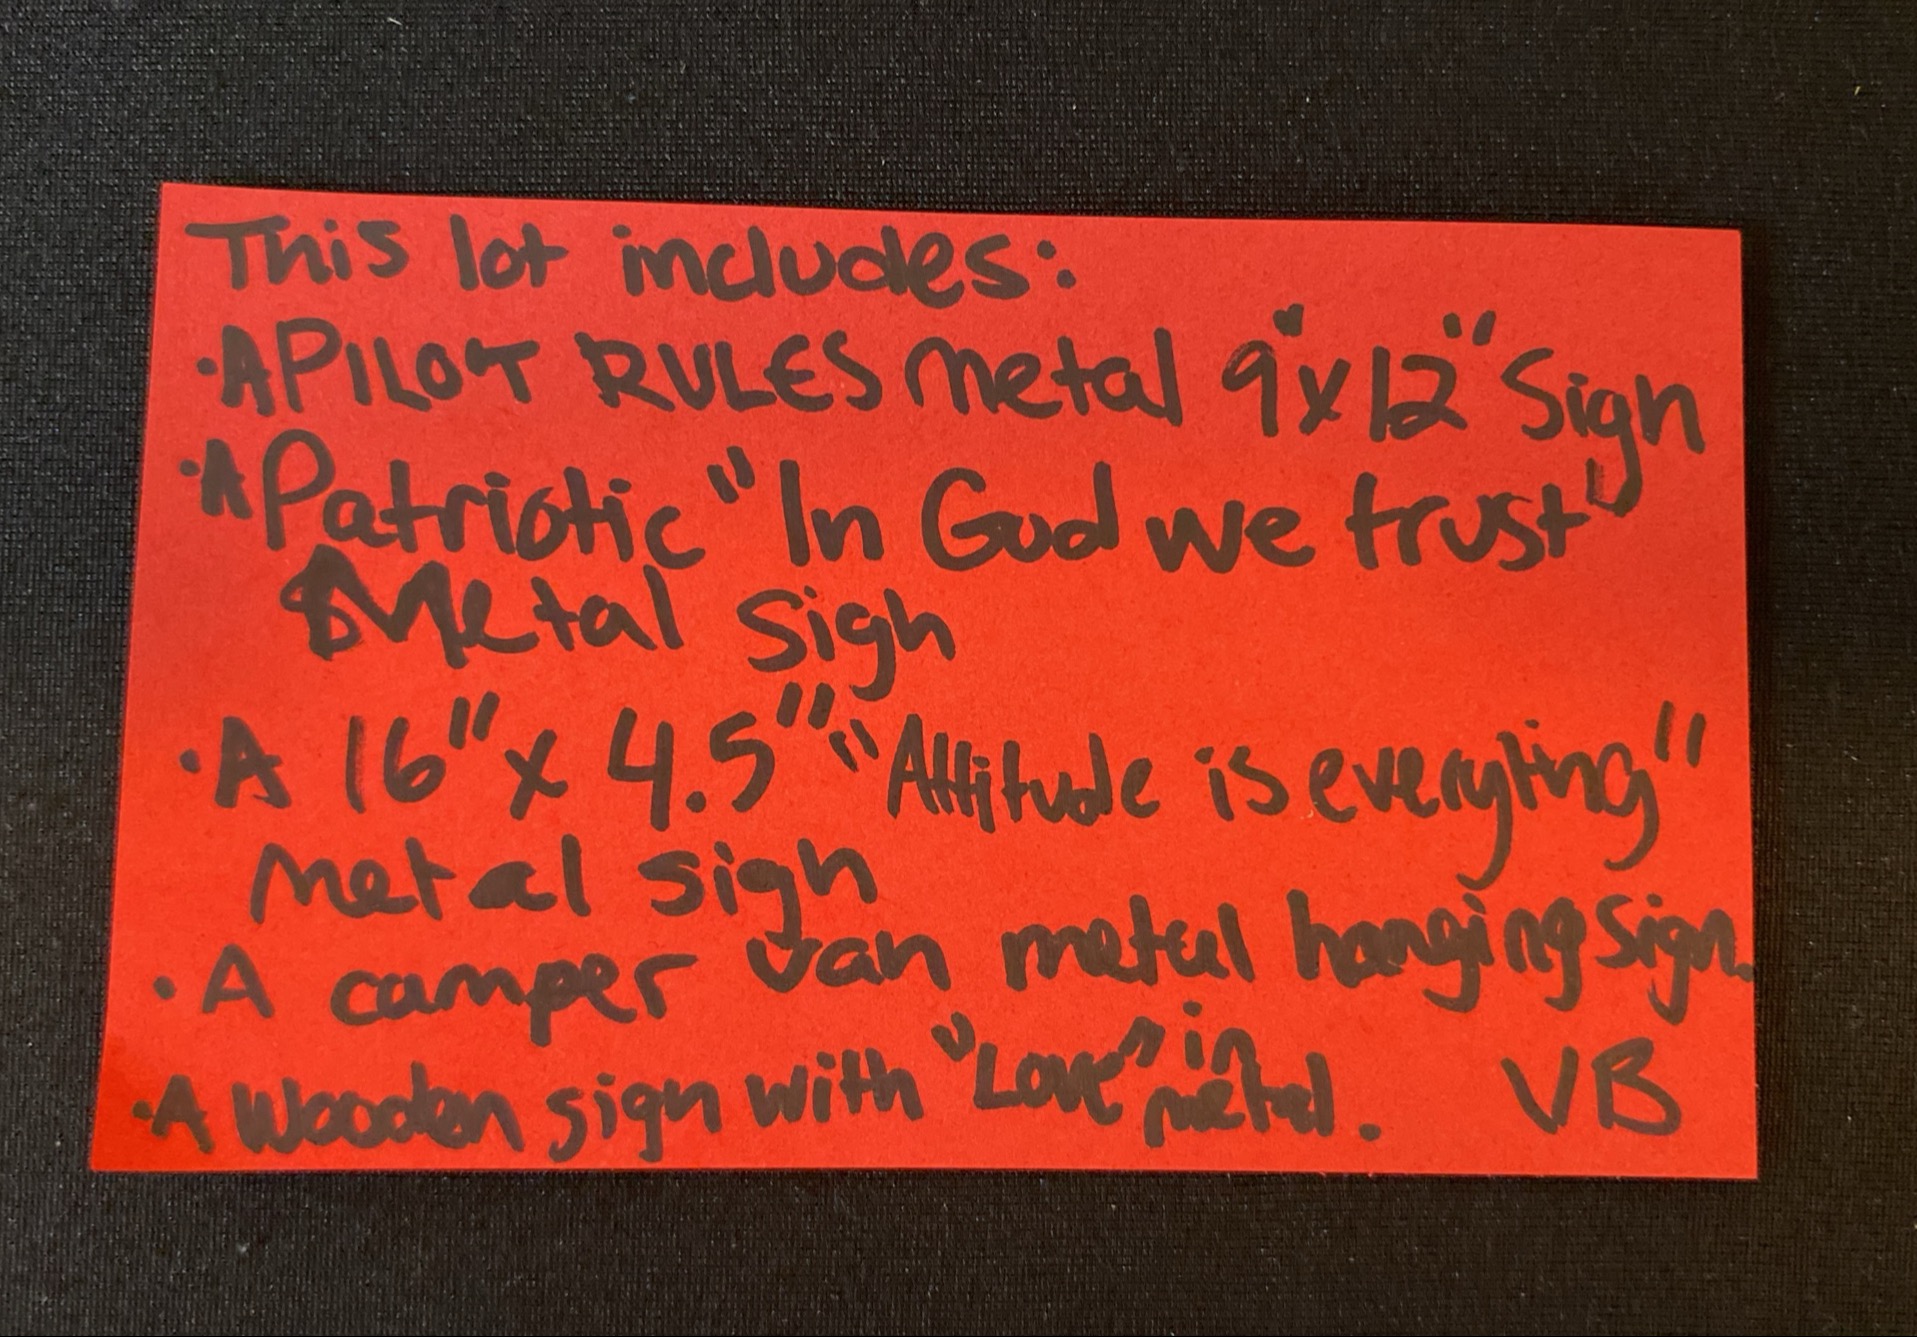 This lot includes:
·A PILOT RULES metal 9"x12" Sign
·A Patriotic "In God we trust"
Metal sign
·A 16" x 4.5" "Attitude is everyting"
metal sign
·A camper van metal hanging sign.
·A wooden sign with "Love" in metal. VB